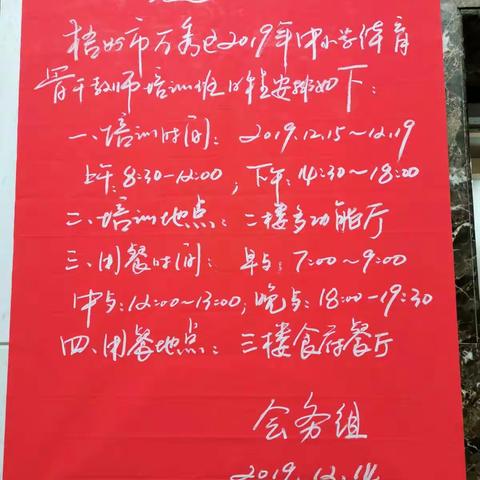 梧州市万秀区2019年中小学体育
骨干教师培训班日程安排如下:
一、培训时间: 2019.12.15~12.19
上午: 8:30-12:00 ; 下午: 14:30~18:00
二、培训地点: 二楼多功能厅
三、用餐时间: 早上: 7:00~9:00
中午: 12:00~13:00; 晚上: 18:00-19:30
四、用餐地点: 三楼食府餐厅
会务组
2019.12.14